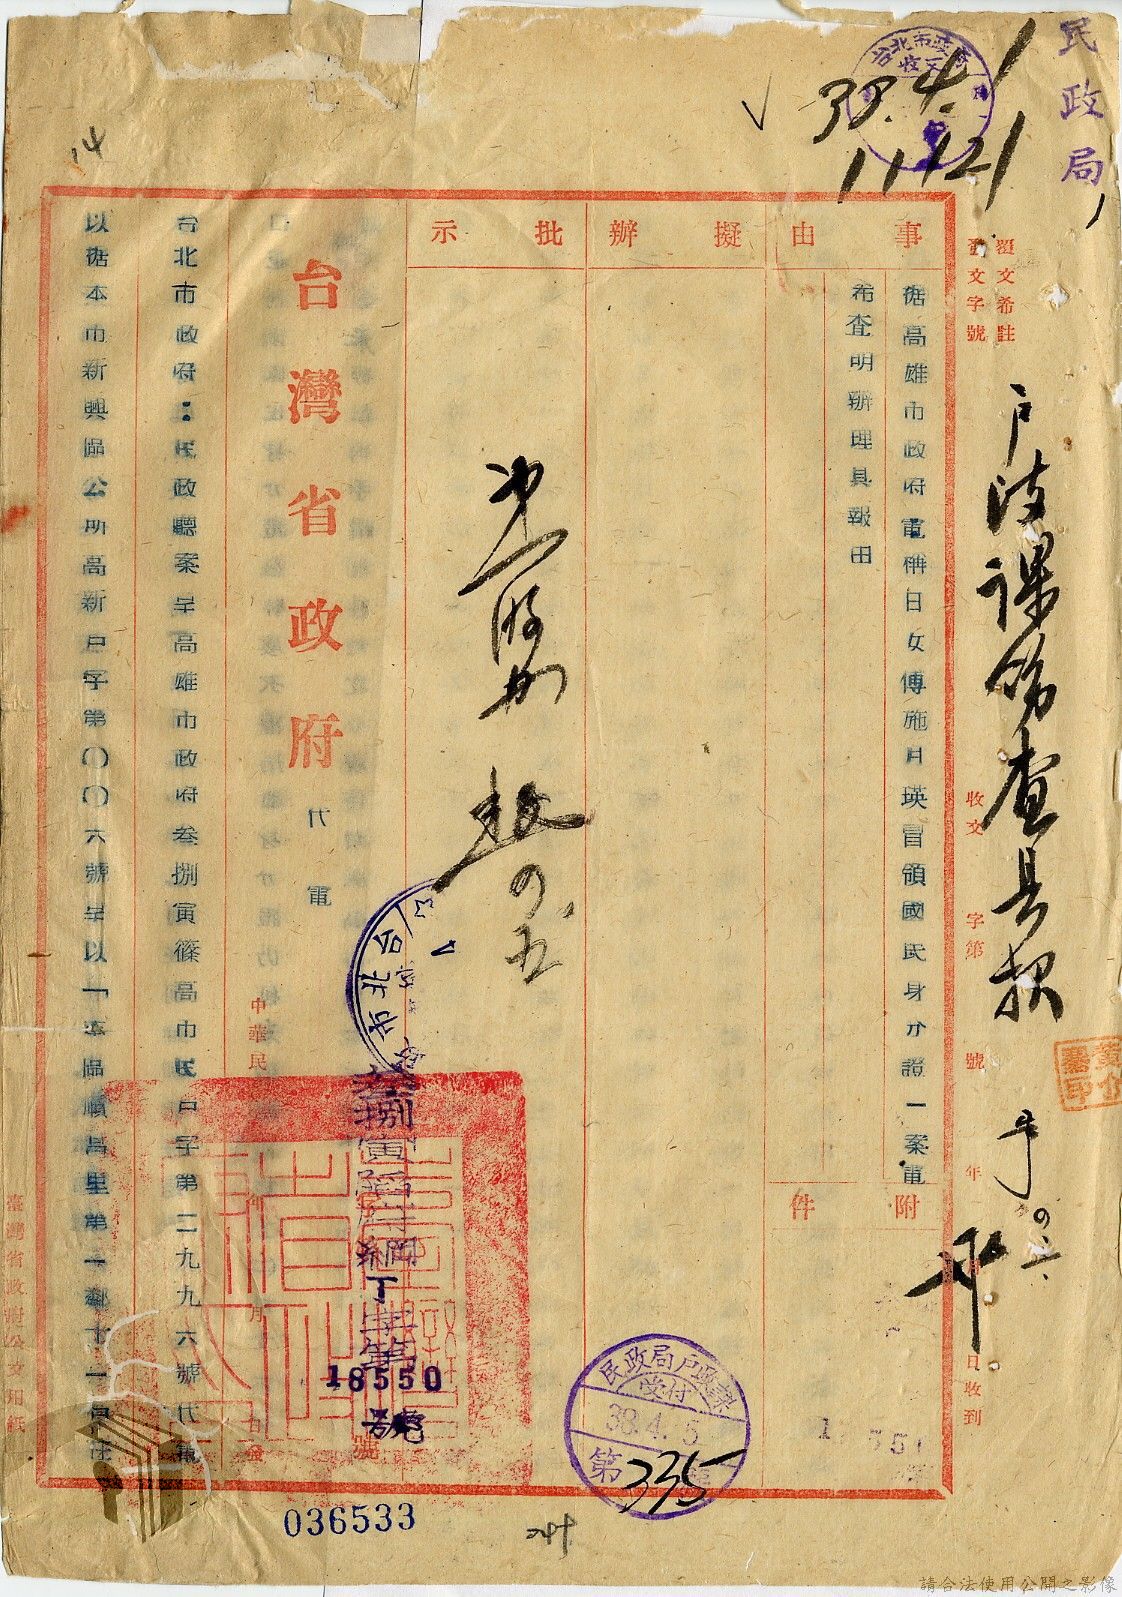 民政局
台北市政府
收文
38.4.1
11121
覆文希註
發文字號
收文 字第 號 年 月 日收到
戶政課飭查具報
事由
擬辦
批示
據高雄市政府電稱日女傅施月瑛冒領國民身分證一案電
希查明辦理具報由
附件
台灣省政府
代電
中華民國 年 月 日發
號
叁捌寅
府綱丁字第
18550
號
台北市政府：民政廳案呈高雄市政府叁捌寅篠高市民戶字第二九九六號代電
以據本市新興區公所高新戶字第〇〇六號呈以「本區順昌里第一鄰十一戶住
臺灣省政府公文用紙
民政局戶政課
受付
38.4.5
第335號
036533
14
請合法使用公開之影像